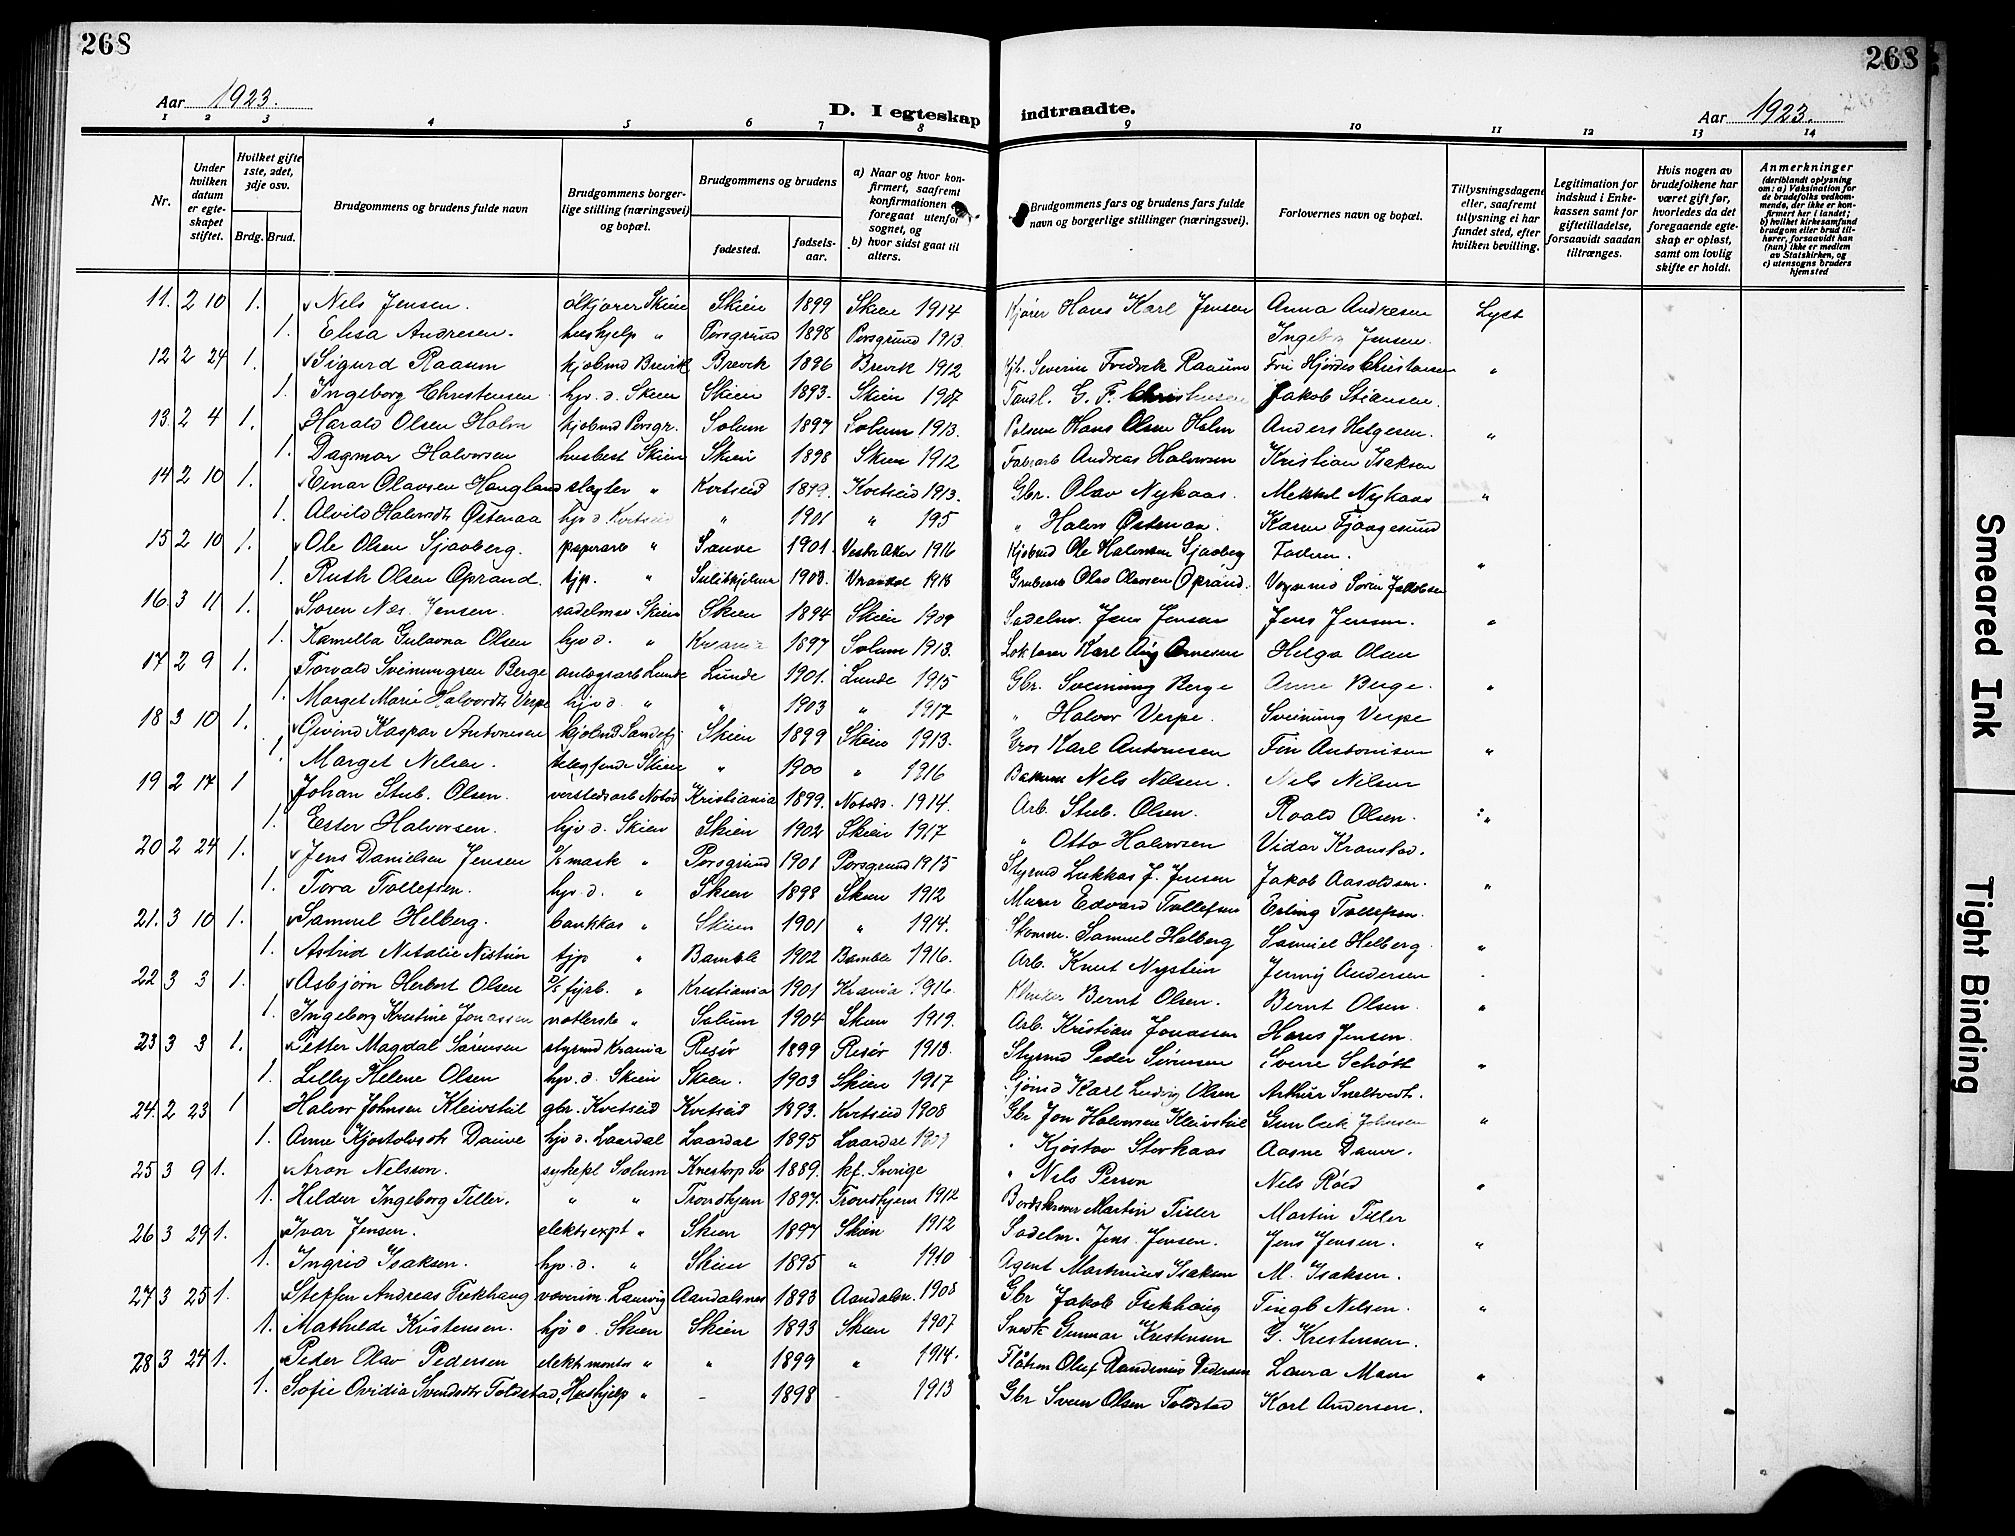 268
268
Aar 1923.
D. I egteskap indtraadte.
Aar 1923.
1 2 3 4 5 6 7 8 9 10 11 12 13 14
Nr.
Under hvilken datum er egteskapet stiftet.
Hvilket gifte 1ste, 2det, 3dje osv.
Brdg. Brud.
Brudgommens og brudens fulde navn
Brudgommens borgerlige stilling (næringsvei) og bopæl.
Brudgommens og brudens
fødested.
fødselsaar.
a) Naar og hvor konfirmert, saafremt konfirmationen foregaat utenfor sognet, og
b) hvor sidst gaat til alters.
Brudgommens fars og brudens fars fulde navn og borgerlige stillinger (næringsvei).
Forlovernes navn og bopæl.
Tillysningsdagene eller, saafremt tillysning ei har fundet sted, efter hvilken bevilling.
Legitimation for indskud i Enkekassen samt for giftetilladelse, forsaavidt saadan tiltrænges.
Hvis nogen av brudefolkene har været gift før, hvorledes da det foregaaende egteskap er opløst, samt om lovlig skifte er holdt.
Anmerkninger
(deriblandt oplysning om: a) Vaksination for de brudefolks vedkommende, der ikke er konfirmert her i landet; b) hvilket kirkesamfund brudgom eller brud tilhører, forsaavidt han (hun) ikke er medlem av Statskirken, og c) utensogns bruders hjemsted
11. 2 10 1. Nels Jensen. ølkjører Skien Skien 1899 Skien 1914 Kjører Hans Karl Jensen Anna Andresen Lyst
1. Elisa Andresen. hushjelp " Porsgrund 1898 Porsgrund 1913. Ingeb Jensen.
12 2 24 1. Sigurd Raaum kjøbmd Brevik Brevik 1896 Brevik 1912 Severin Fredrik Raaum Fru Hjørdis Christensen "
1. Ingeborg Christensen hjv. d. Skien Skien 1893. Skien 1907 G. F. Christensen Jakob Stiansen.
13. 2 4 1. Harald Olsen Holm kjøbmd Porsgr. Solum 1897 Solum 1913. Hans Olsen Holm Anders Helgesen. "
1. Dagmar Halvorsen husbest Skien Skien 1898 Skien 1912 Fabrarb Andreas Halvorsen Kristian Isaksen
14 2 10 1. Einar Olavsen Haugland slagter " Kvitseid 1899. Kvitseid 1913. Gbr. Olav Nykaas. Mikkel Nykaas "
1. Alvild Halvordtr Østenaa hjv d. Kvitseid " 1901 " 195 " Halvor Østenaa. Karen Tjaagesund
15 2 10 1. Ole Olsen Sjaaberg. paperarb " Sauve 1901. Vestre Aker 1916 Kjøbmd Ole Halvorsen Sjaaberg Faderen. "
1. Ruth Olsen Oprand. tjp. " Sulitkjelma 1903. 1918 Olav Olavsen Oprand. Vognmd Søren Jakobsen
16. 3 11 1. Søren Nic. Jensen. sadelmar Skien Skien 1894 Skien 1909 Sadelm. Jens Jensen Jens Jensen. "
1. Kamilla Gulavna Olsen hjv d. " 1897 Solum 1913. Karl Aug Arnesen Helga Olsen
17 2 9 1. Torvald Sveinungsen Berge anlægsarb Lunde Lunde 1901. Lunde 1915 Gbr. Sveinung Berge Anne Berge. "
1. Marget Marie Halvordtr Verpe hjv d. " " 1903 " 1917 " Halvor Verpe. Sveinung Verpe
18 3 10 1. Øivind Kaspar Antonisen kjøbmd Sandefj. Skien 1899 Skien 1913. Gros Karl Antonisen Finn Antonisen "
1. Marget Nelsen. Skien " 1900 " 1916 Nels Nelsen. Nels Nilsen
19 2 17 1 Johan Stub. Olsen. verkstedsarb Notod Kristiania 1899. Notodd. 1914. Arb. Stub. Olsen. Roald Olsen. "
1. Ester Halvorsen. hjv d. Skien Skien 1902 Skien 1917 " Otto Halvorsen Vidar Kronstad.
20 2 24 1. Jens Danielsen Jensen mask " Porsgrund 1901 Porsgrund 1915 Styrmd Lukkas J. Jensen Jakob Aasoldsen. "
1. Tora Tollefsen. hjv. d. " Skien 1898 Skien 1912 Murer Edvard Tollefsen Erling Tollefsen.
21. 3 10 1. Samuel Helberg. bankkas " Skien 1901 " 1914. Samuel Helberg Samuel Helberg. "
1. Astrid Natalie Nistein tjp " Bamble 1902 Bamble 1916. Arb. Knut Nystein Jenny Andersen
22 3 3 1. Asbjørn Herbert Olsen fyrb. " Kristiania 1901 Krania 1916. Bernt Olsen. Bernt Olsen. "
1. Ingeborg Kristine Jonassen " Solum 1904 Skien 1919. Arb. Kristian Jonassen Hans Jensen.
23 3 3 1. Petter Magdal Sørensen styrmd Krania Risør 1899 Risør 1913. Styrmd Peder Sørensen Sverre Schøtt "
1. Lilly Helene Olsen hjv. d. Skien Skien. 1903 Skien 1917 Karl Ludvig Olsen Arthur Sneltvedt.
24. 2 23 1 Halvor Johnsen Kleivstul gbr. Kvitseid Kvitseid 1893. Kvitseid 1908 Gbr Jon Halvorsen Kleivstul Gunleik Johnsen "
1. Anne Kjøstolvsdtr Dauve hjv d. Laardal Laardal 1895 Laardal 1909 " Kjøstov Storkaas Aasne Dauve.
25 3 9 1. Aron Nelsson. sykepl Solum Knestorp Sv 1889. kf. Sverige " Nels Person Nels Röed "
1. Hildur Ingeborg Tiller. " " Trondhjem 1897. Trondhjem 1912 Bordskriver Martin Tiller Martin Tiller
26 3 29 1. Ivar Jensen. elektr expt " Skien 1897 Skien 1912 Sadelm. Jens Jensen. Jens Jensen. "
1. Ingrid Isaksen. hjv. d. " Skien 1895 " 1910 Agent Martinius Isaksen M. Isaksen.
27 3 25 1. Steffen Andreas Trekhaug væverim. Laurvig Aandalsnes 1893 Aandalsn. 1908 Gbr Jakob Trekhaug Tingb Nilsen. "
1. Mathilde Kristensen. hjv d. Skien Skien 1893 Skien 1907 Snedk Gunnar Kristensen G. Kristensen.
28 3 24 1. Peder Olav Pedersen elekt montør " " 1899 " 1914. Olaf Pedersen Laura Moen "
1. Sofie Ovidia Svendsdtr Foldstad, Hushjelp " - 1898 - 1913 Gbr Svein Olsen Foldstad Karl Andersen.
Smeared Ink
Tight Binding